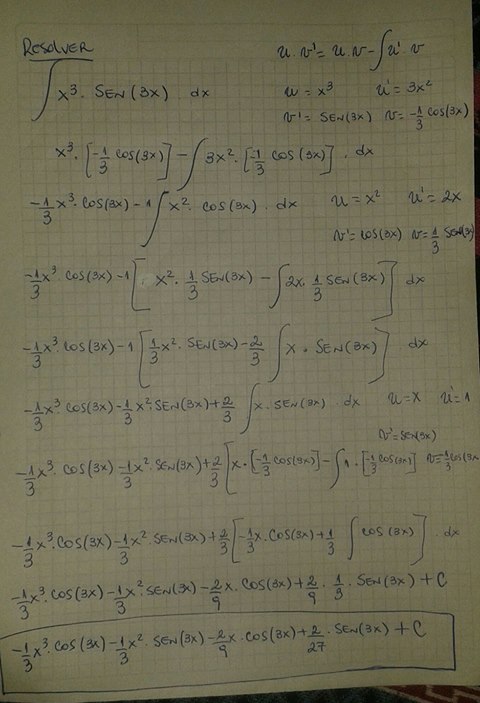 RESOLVER
u.v' = u.v - ∫ u' v
∫ x³ · SEN(3x) . dx
u = x³ u' = 3x²
v' = SEN(3x) v = -1/3 cos(3x)
x³ · [-1/3 cos(3x)] - ∫ 3x² · [-1/3 cos(3x)] . dx
-1/3 x³ · cos(3x) - 1 ∫ x² · cos(3x) . dx u = x² u' = 2x
v' = cos(3x) v = 1/3 SEN(3x)
-1/3 x³ · cos(3x) - 1 [ x² · 1/3 SEN(3x) - ∫ 2x · 1/3 SEN(3x) ] dx
-1/3 x³ · cos(3x) - 1 [ 1/3 x² · SEN(3x) - 2/3 ∫ x · SEN(3x) ] dx
-1/3 x³ · cos(3x) - 1/3 x² · SEN(3x) + 2/3 ∫ x · SEN(3x) . dx u = x u' = 1
v' = SEN(3x)
-1/3 x³ · cos(3x) - 1/3 x² · SEN(3x) + 2/3 [ x · [-1/3 cos(3x)] - ∫ 1 · [-1/3 cos(3x)] v = -1/3 cos(3x
-1/3 x³ · cos(3x) - 1/3 x² SEN(3x) + 2/3 [ -1/3 x · cos(3x) + 1/3 ∫ cos(3x) ] . dx
-1/3 x³ · cos(3x) - 1/3 x² · SEN(3x) - 2/9 x · cos(3x) + 2/9 · 1/3 · SEN(3x) + C
-1/3 x³ · cos(3x) - 1/3 x² · SEN(3x) - 2/9 x · cos(3x) + 2/27 · SEN(3x) + C